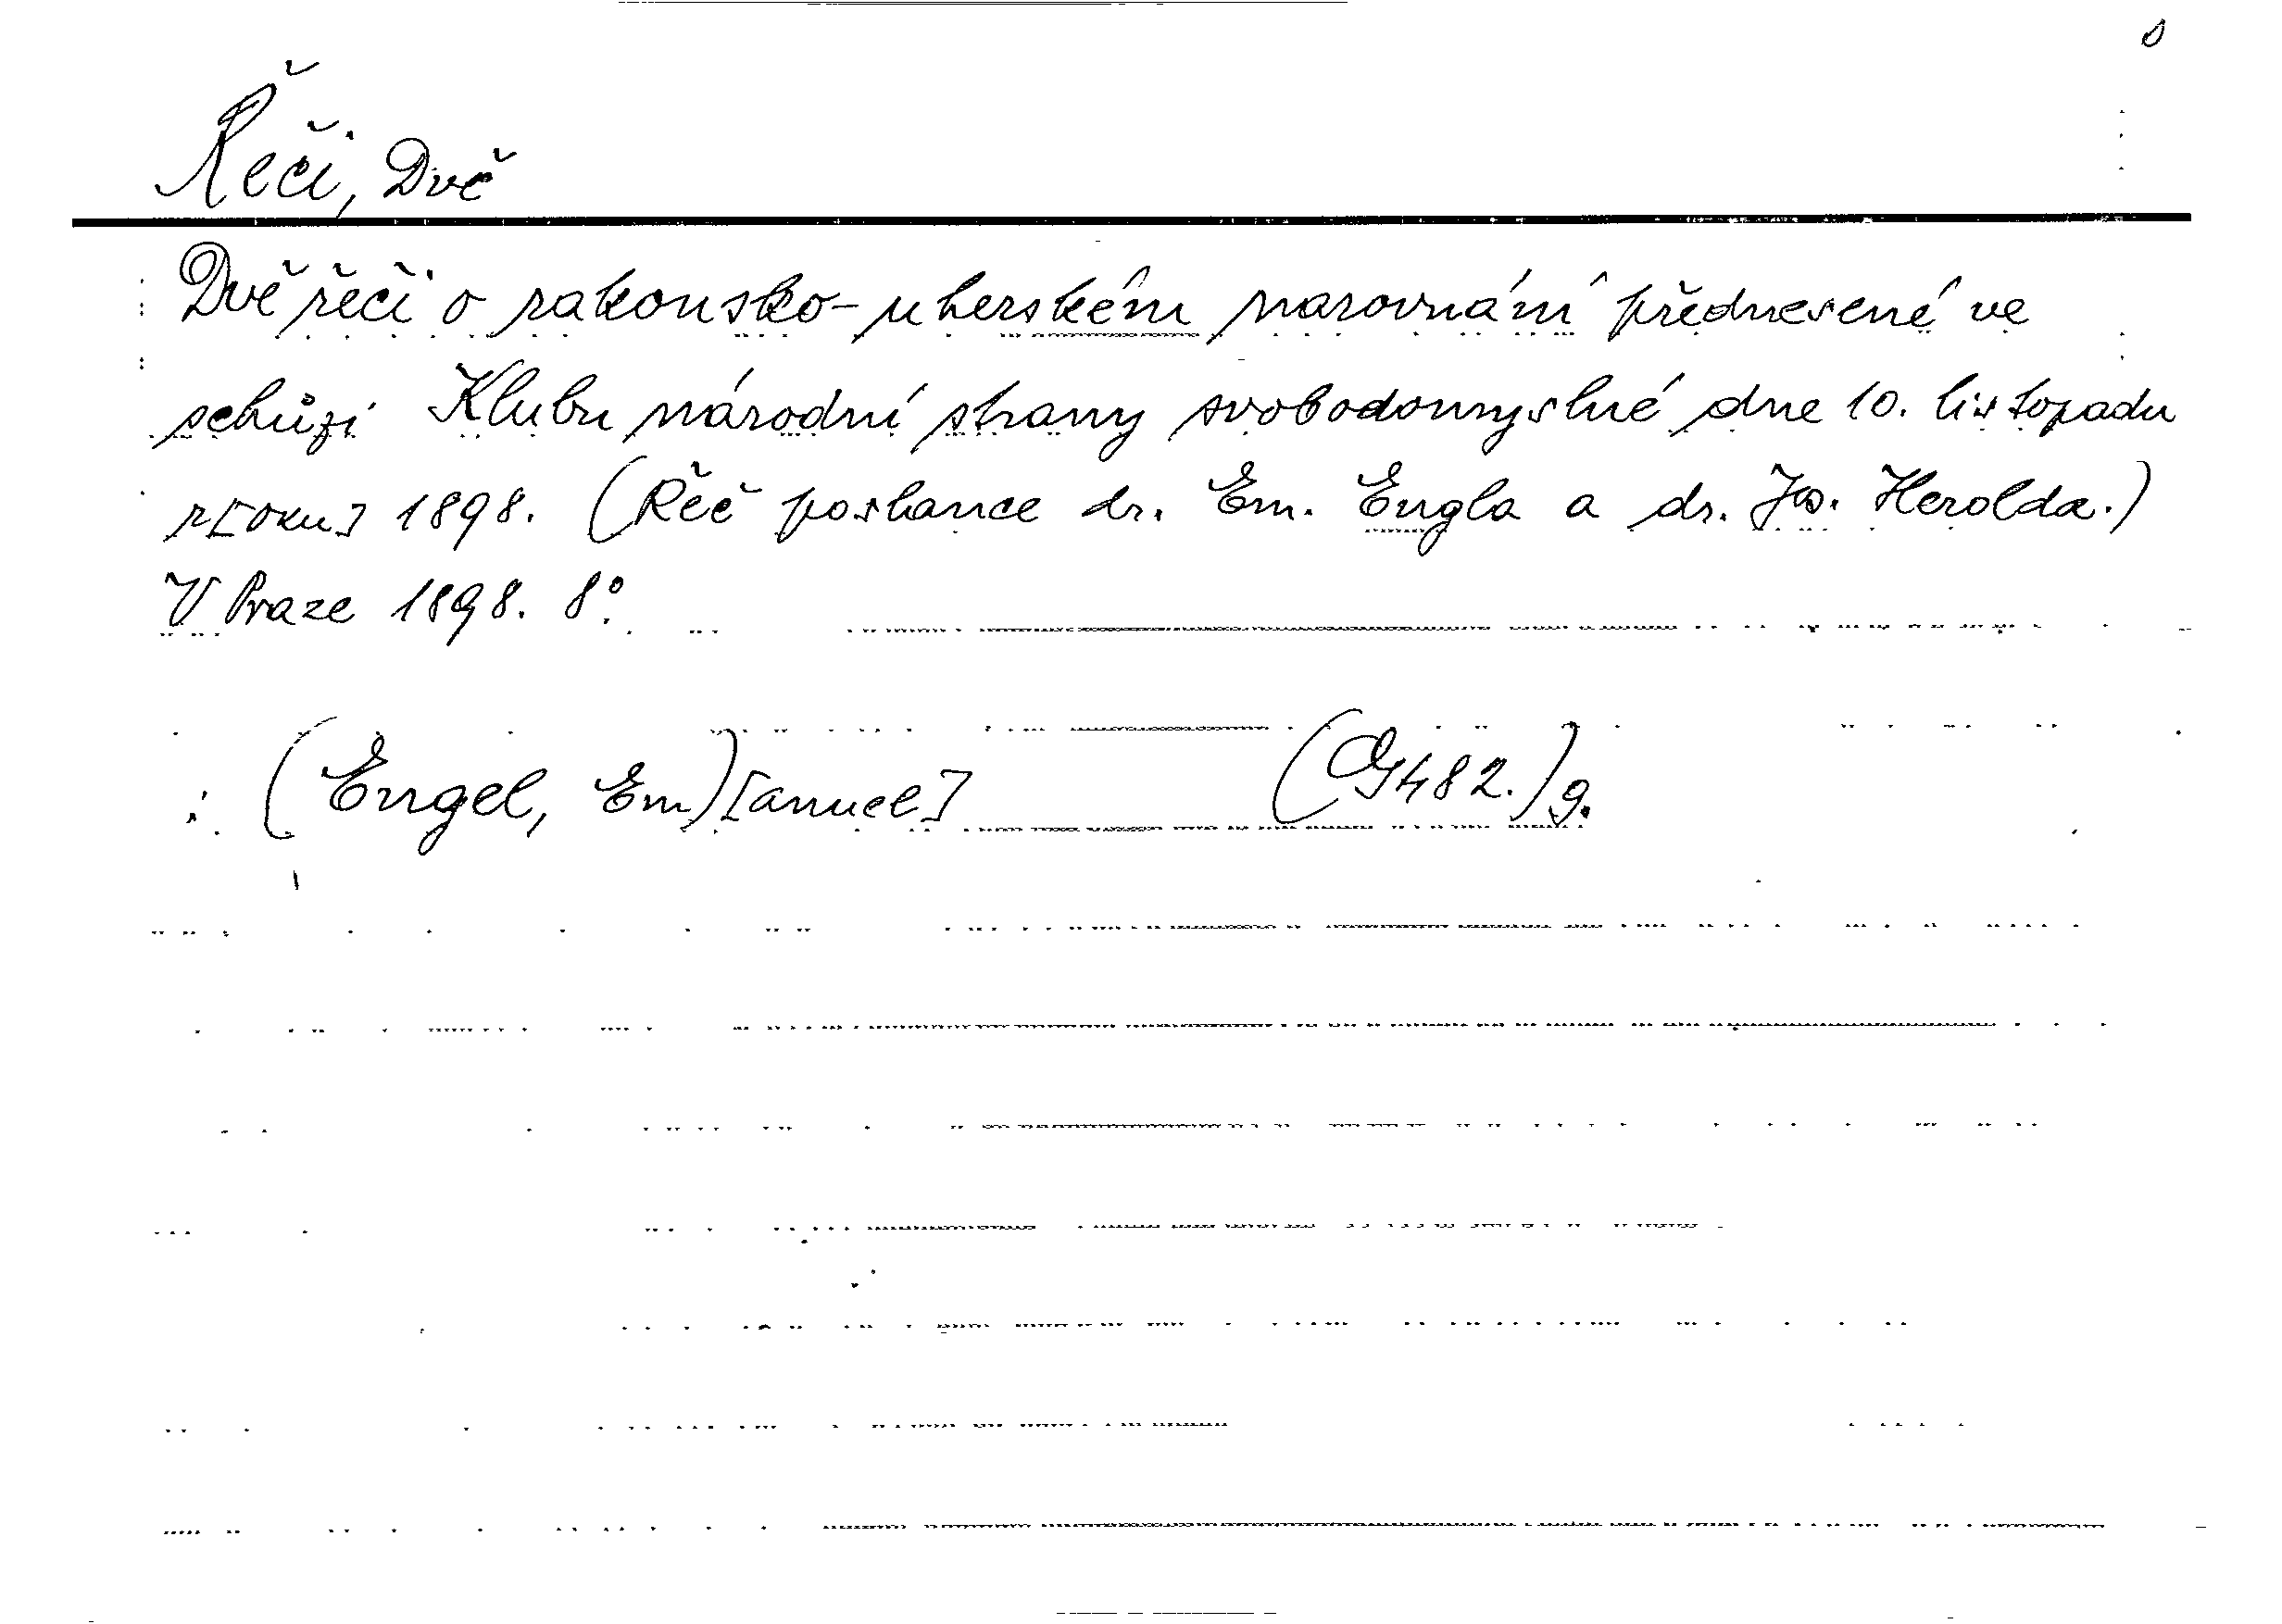 Řeči, Dvě
Dvě řeči o rakousko-uherském narovnání přednesené ve
schůzi Klubu národní strany svobodomyslné dne 10. listopadu
r[oku] 1898. (Řeč poslance dr. Em. Engla a dr. Jos. Herolda.)
V Praze 1898. 8°.
(Engel, Em)[anuel]